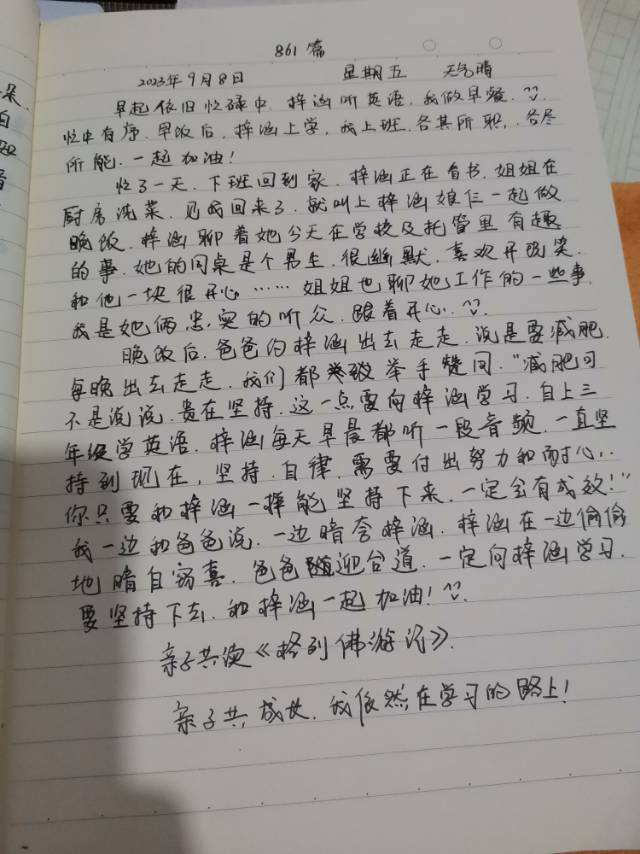 861篇
2023年9月8日 星期五 天气晴
早起依旧忙碌中.梓涵听英语.我做早餐.
忙中有序.早饭后.梓涵上学.我上班.各其所职.各尽
所能.一起加油!
忙了一天.下班回到家.梓涵正在看书.姐姐在
厨房洗菜.见我回来了.就叫上梓涵娘仨一起做
晚饭.梓涵聊着她今天在学校及托管里有趣
的事.她的同桌是个男生.很幽默.喜欢开玩笑.
和他一块很开心……姐姐也聊她工作的一些事.
我是她俩忠实的听众.跟着开心.
晚饭后.爸爸约梓涵出去走走.说是要减肥.
每晚出去走走.我们都举手赞同."减肥可
不是说说.贵在坚持.这一点要向梓涵学习.自上三
年级学英语.梓涵每天早晨都听一段音频.一直坚
持到现在,坚持.自律.需要付出努力和耐心..
你只要和梓涵一样能坚持下来.一定会有成效!"
我一边和爸爸说.一边暗夸梓涵.梓涵在一边偷偷
地暗自窃喜.爸爸迎合道.一定向梓涵学习.
要坚持下去.和梓涵一起加油!
亲子共读《格列佛游记》.
亲子共成长.我依然在学习的路上!